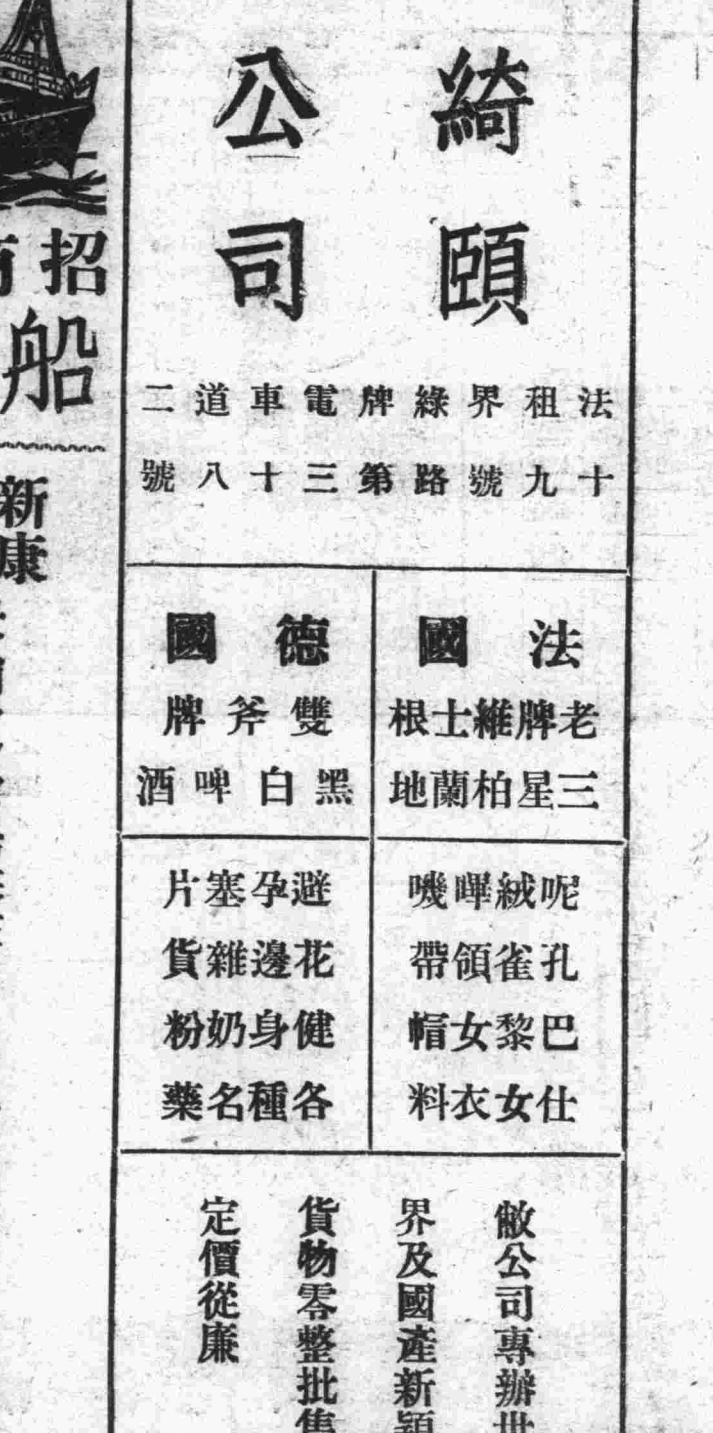 綺頤
公司
法租界綠牌電車道二
十九號路第三十八號
法國
老牌維士根
三星柏蘭地
德國
雙斧牌
黑白啤酒
呢絨嗶嘰
孔雀領帶
巴黎女帽
仕女衣料
避孕塞片
花邊雜貨
健身奶粉
各種名藥
敝公司專辦世
界及國產新穎
貨物零整批售
定價從廉
招
船
新康